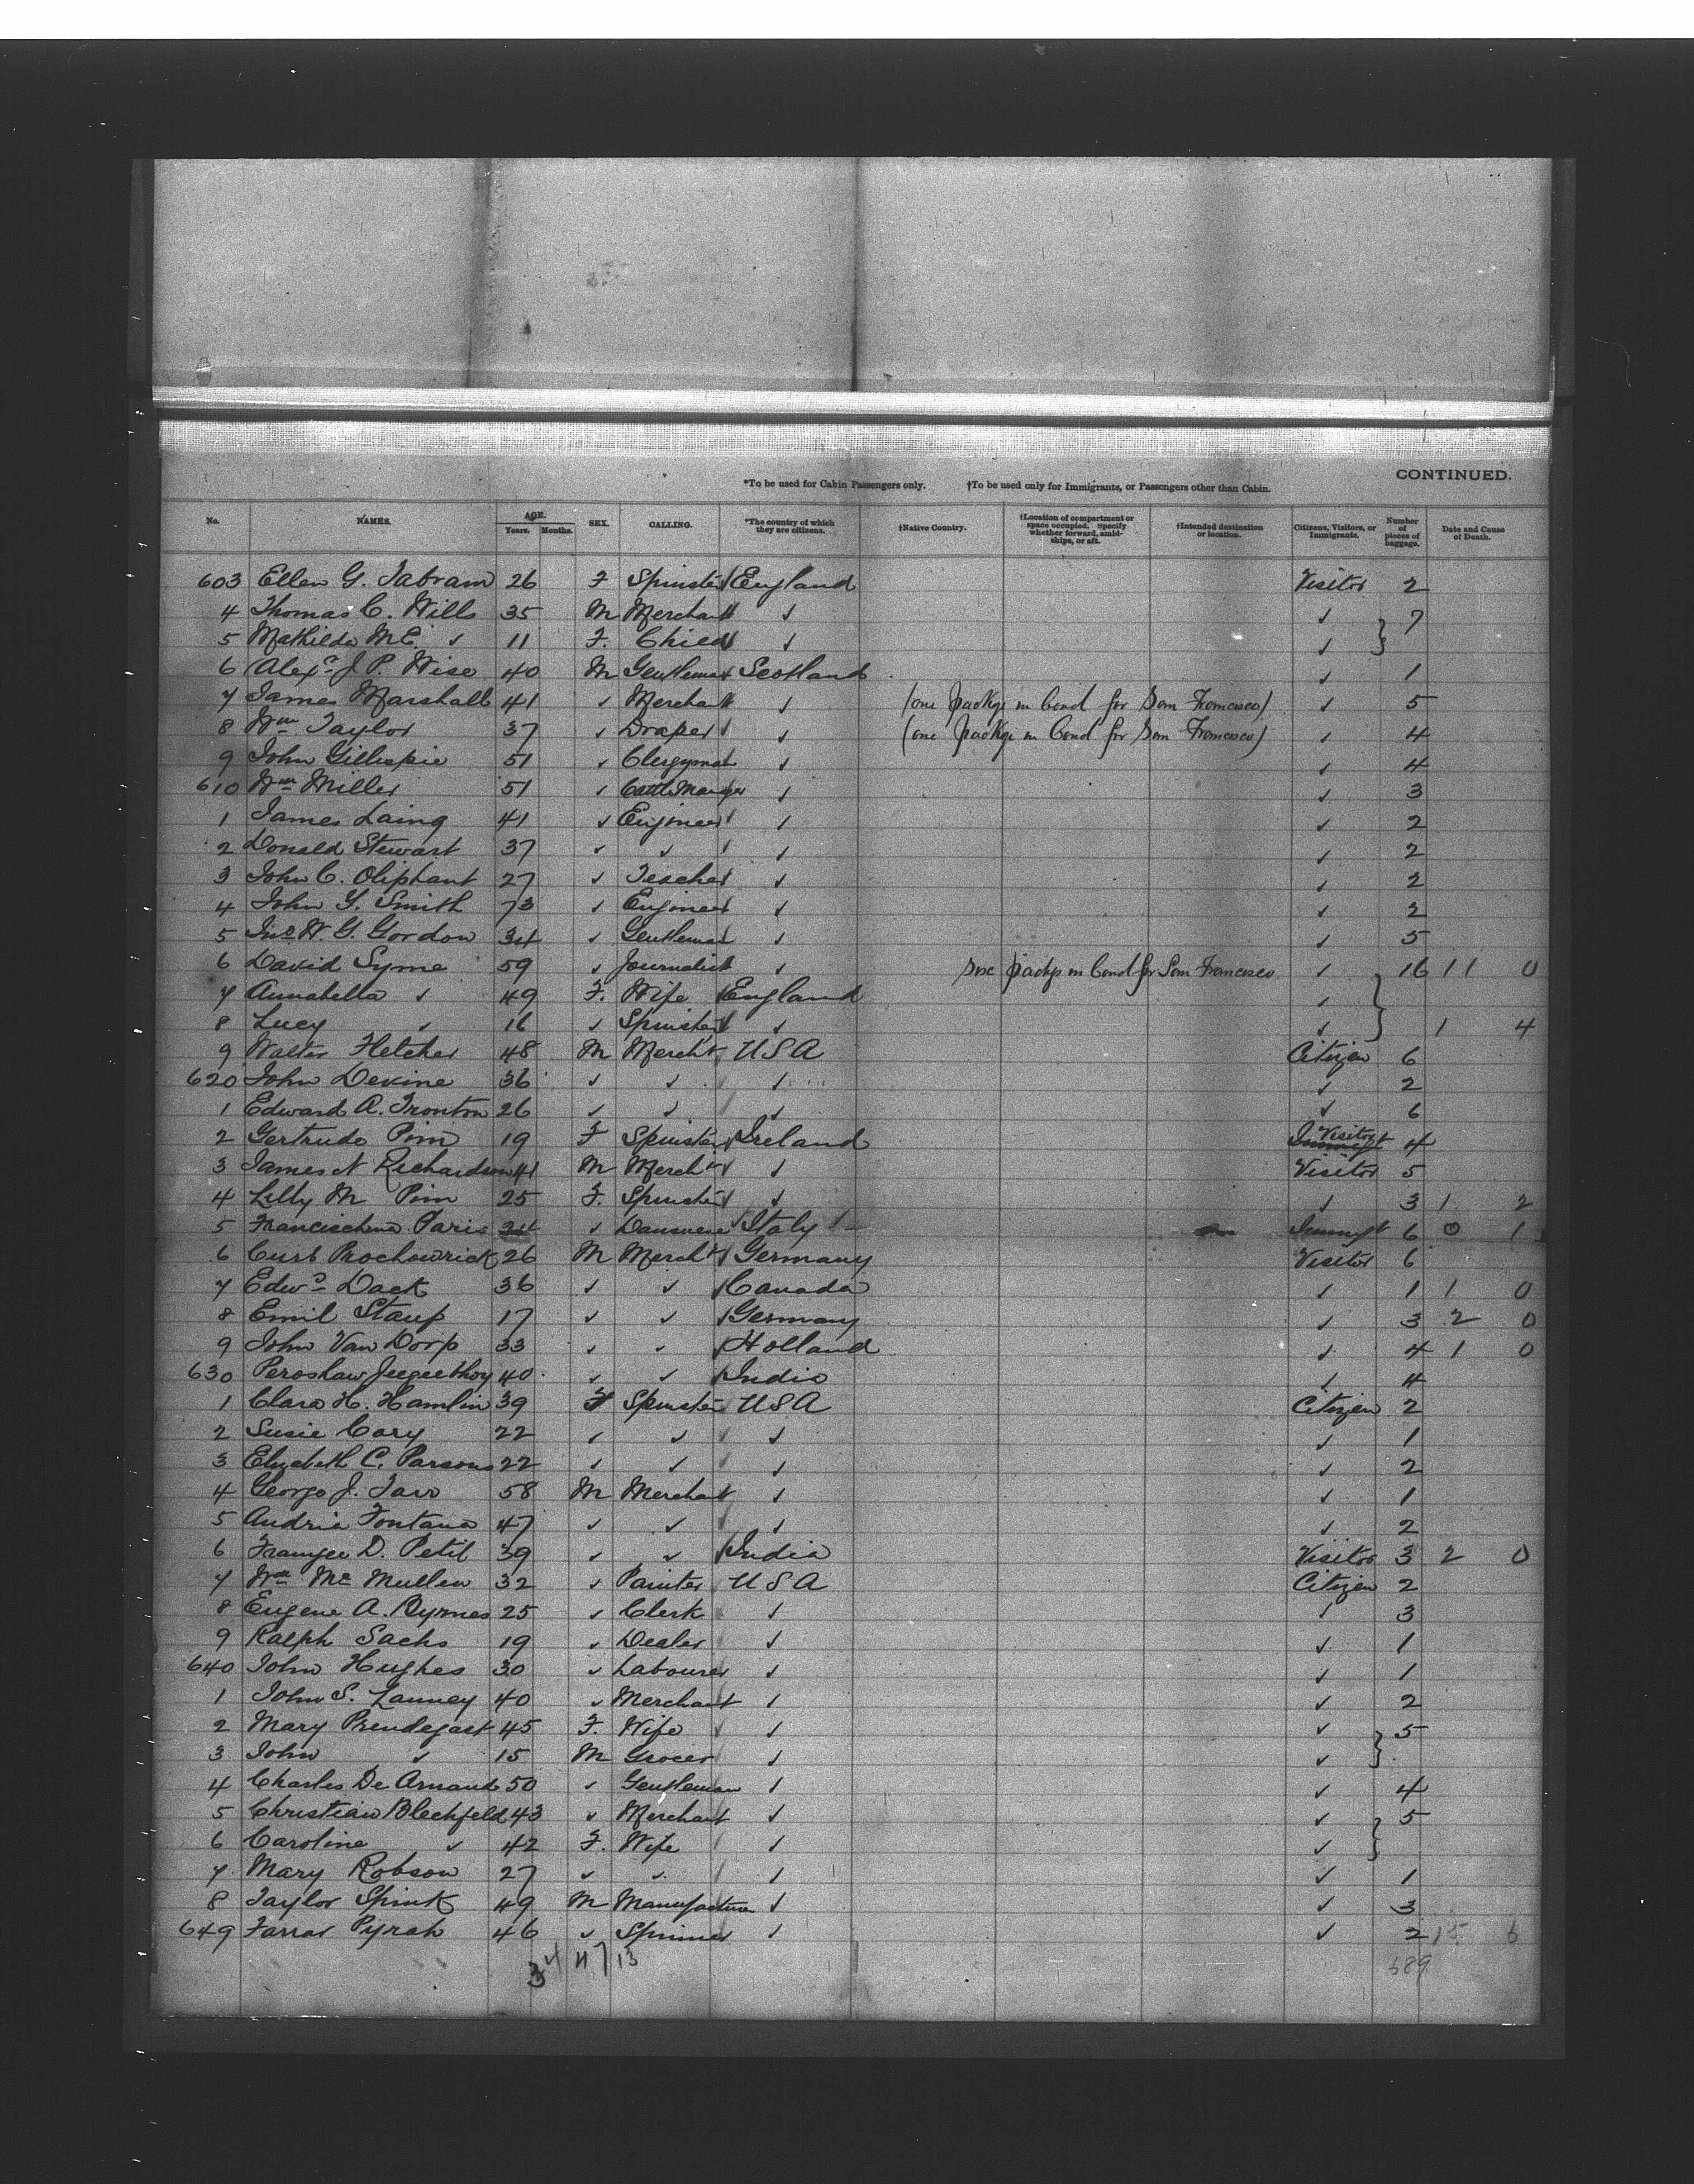 CONTINUED.
*To be used for Cabin Passengers only. †To be used only for Immigrants, or Passengers other than Cabin.
No. NAMES. AGE. Years. Months. SEX. CALLING. *The country of which they are citizens. †Native Country. †Location of compartment or space occupied. Specify whether forward, amidships, or aft. †Intended destination or location. Citizens, Visitors, or Immigrants. Number of pieces of baggage. Date and Cause of Death.
603 Ellen G. Tabram 26 F Spinster England Visitor 2
4 Thomas C. Wills 35 M Merchant ✓ ✓ 7
5 Mathilda M.E. ✓ 11 F. Child ✓ ✓
6 Alexr J. P. Wise 40 M Gentleman Scotland ✓ 1
7 James Marshall 41 ✓ Merchant ✓ (one package in bond for San Francisco) ✓ 5
8 Wm Taylor 37 ✓ Draper ✓ (one package in bond for San Francisco) ✓ 4
9 John Gillespie 51 ✓ Clergyman ✓ ✓ 4
610 Wm Miller 51 ✓ Cattle Manger ✓ ✓ 3
1 James Laing 41 ✓ Engineer ✓ ✓ 2
2 Donald Stewart 37 ✓ ✓ ✓ ✓ 2
3 John C. Oliphant 27 ✓ Teacher ✓ ✓ 2
4 John Y. Smith 73 ✓ Engineer ✓ ✓ 2
5 Jno W. G. Gordon 34 ✓ Gentleman ✓ ✓ 5
6 David Syme 59 ✓ Journalist ✓ packgs in bond for San Francisco ✓ 16 11 0
7 Annabella ✓ 49 F. Wife England ✓
8 Lucy ✓ 16 ✓ Spinster ✓ ✓ 1 4
9 Walter Fletcher 48 M Mercht USA Citizen 6
620 John Devine 36 ✓ ✓ ✓ ✓ 2
1 Edward A. Tronton 26 ✓ ✓ ✓ ✓ 6
2 Gertrude Pim 19 F Spinster Ireland Visitor 4
3 James N Richardson 41 M Mercht ✓ Visitor 5
4 Lilly M Pim 25 F. Spinster ✓ ✓ 3 1 2
5 Francischina Paris 24 ✓ Danseuse Italy Immigt 6 0 1
6 Curt Prochowrick 26 M Mercht Germany Visitor 6
7 Edwd Dack 36 ✓ ✓ Canada ✓ 1 1 0
8 Emil Staup 17 ✓ ✓ Germany ✓ 3 2 0
9 John Van Dorp 33 ✓ ✓ Holland ✓ 4 1 0
630 Peroshaw Jeejeebhoy 40 ✓ ✓ India ✓ 4
1 Clara H. Hamlin 39 F Spinster USA Citizen 2
2 Susie Cory 22 ✓ ✓ ✓ ✓ 1
3 Elizabeth C. Parsons 22 ✓ ✓ ✓ ✓ 2
4 George J. Tarr 58 M Merchant ✓ ✓ 1
5 Andria Fontana 47 ✓ ✓ ✓ ✓ 2
6 Framjee D. Petit 39 ✓ ✓ India Visitor 3 2 0
7 Wm Mc Mullen 32 ✓ Painter USA Citizen 2
8 Eugene A. Byrnes 25 ✓ Clerk ✓ ✓ 3
9 Ralph Sachs 19 ✓ Dealer ✓ ✓ 1
640 John Hughes 30 ✓ Labourer ✓ ✓ 1
1 John S. Lanney 40 ✓ Merchant ✓ ✓ 2
2 Mary Prendegast 45 F. Wife ✓ ✓ 5
3 John ✓ 15 M Grocer ✓ ✓
4 Charles De Arnaud 50 ✓ Gentleman ✓ ✓ 4
5 Christian Blechfeld 43 ✓ Merchant ✓ ✓ 5
6 Caroline ✓ 42 F. Wife ✓ ✓
7 Mary Robson 27 ✓ ✓ ✓ ✓ 1
8 Taylor Spink 49 M Manufacturer ✓ ✓ 3
649 Farrar Pyrah 46 ✓ Spinner ✓ ✓ 2 15 6